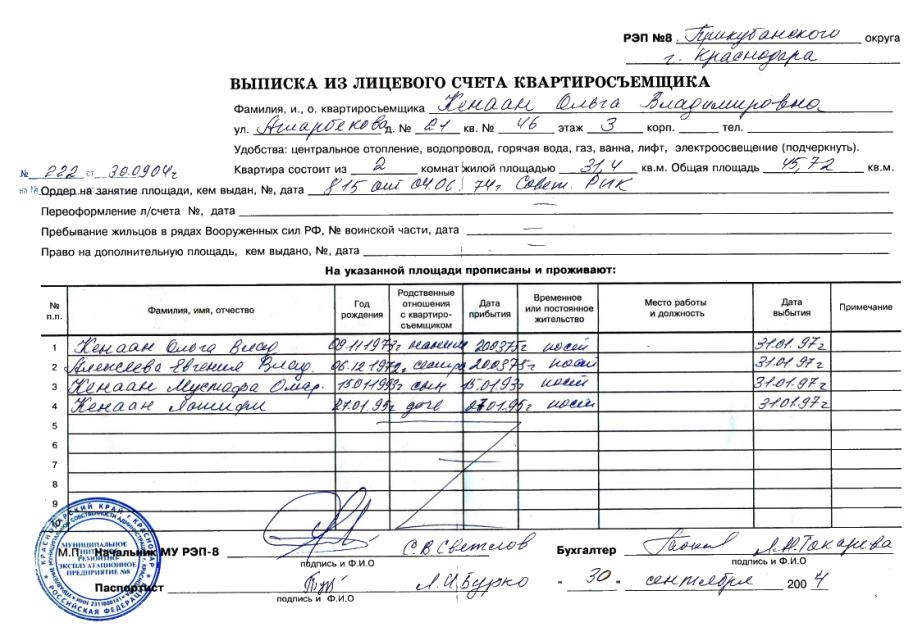 РЭП №8 Прикубанского округа
г. Краснодара
ВЫПИСКА ИЗ ЛИЦЕВОГО СЧЕТА КВАРТИРОСЪЕМЩИКА
Фамилия, и., о. квартиросъемщика Кенаан Ольга Владимировна
ул. Ашарбекова д. № 21 кв. № 46 этаж 3 корп. тел.
Удобства: центральное отопление, водопровод, горячая вода, газ, ванна, лифт, электроосвещение (подчеркнуть).
№ 222 от 30.09.04г
Квартира состоит из 2 комнат жилой площадью 31,4 кв.м. Общая площадь 45,72 кв.м.
на №
Ордер на занятие площади, кем выдан, №, дата 815 от 04.06.74г Совет. РИК
Переоформление л/счета №, дата —
Пребывание жильцов в рядах Вооруженных сил РФ, № воинской части, дата —
Право на дополнительную площадь, кем выдано, №, дата —
На указанной площади прописаны и проживают:
№ п.п. Фамилия, имя, отчество Год рождения Родственные отношения с квартиро-съемщиком Дата прибытия Временное или постоянное жительство Место работы и должность Дата выбытия Примечание
1 Кенаан Ольга Влад 200375г посто 31.01.97г
2 Алексеева Евгения Влад. 06.12.1972г сестра 200375г 31.01.97г
3 Кенаан Мустафа Омар. 15.01.1993г сын 15.01.93г 31.01.97г
4 Кенаан 27.01.95г дочь 27.01.95г 31.01.97г
5
6
7
8
9
М.П. Начальник МУ РЭП-8 С В Светлов Бухгалтер Л.М.Токарева
подпись и Ф.И.О подпись и Ф.И.О
Паспортист Л.И.Бурко "30" сентября 2004
подпись и Ф.И.О
КРАСНОДАРСКИЙ КРАЙ г. КРАСНОДАР
РОССИЙСКАЯ ФЕДЕРАЦИЯ
МУНИЦИПАЛЬНОЕ
РЕМОНТНО
ЭКСПЛУАТАЦИОННОЕ
ПРЕДПРИЯТИЕ №8